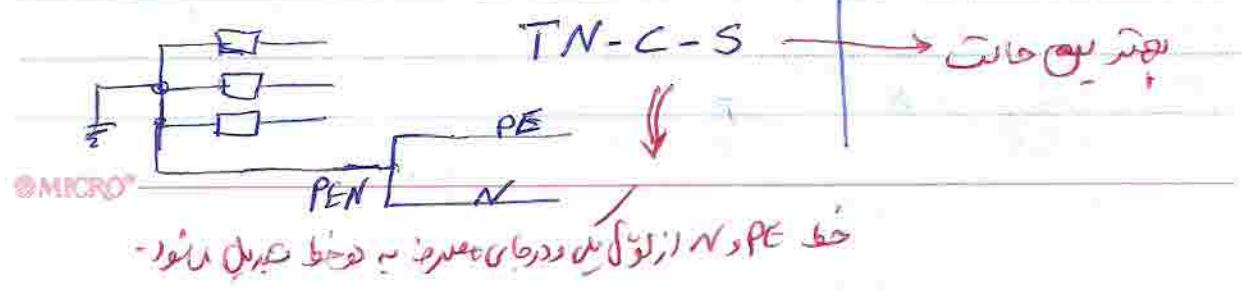 TN-C-S → بهترین حالت
PE
MICRO
PEN N
خط PE و N از اول یکی و در جای مصرف به دو خط تبدیل می‌شود.